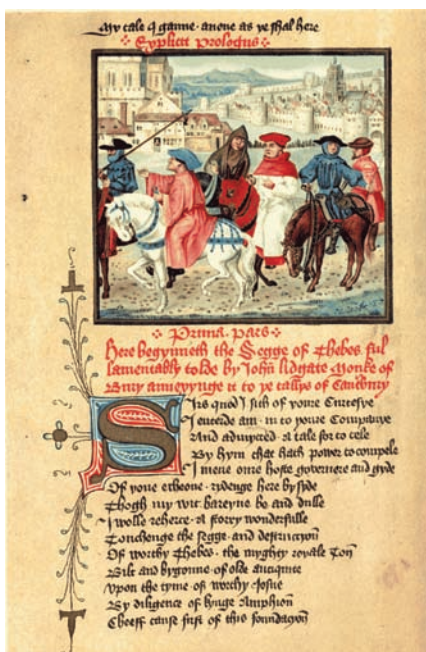 My tale q ganne · anone as ye shal here
Explicit Prologus
Prima · Pars
Here begynneth the Segge of Thebes ful
lamentably tolde by John lidgate Monke of
Bury anneyynge it to ye tallys of
Sirs quod I sith of youre Curtesye
I entrede am in to youre Companye
And admytted · a tale for to tele
By hym that hath power to compele
I mene oure hoste governere and gyde
Of youe echeone · rydenge here by syde
Thogh my wit bareyne be and dulle
I wolle reherce · a story wonderfulle
Touchenge the segge and destruccyon
Of worthy Thebes · the myghty royale Ton
Bilt and bygonne · of olde antiquite
Upon the tyme · of worthy Josue
By diligence of kynge Amphion
Cheeff cause first of this foundacyon